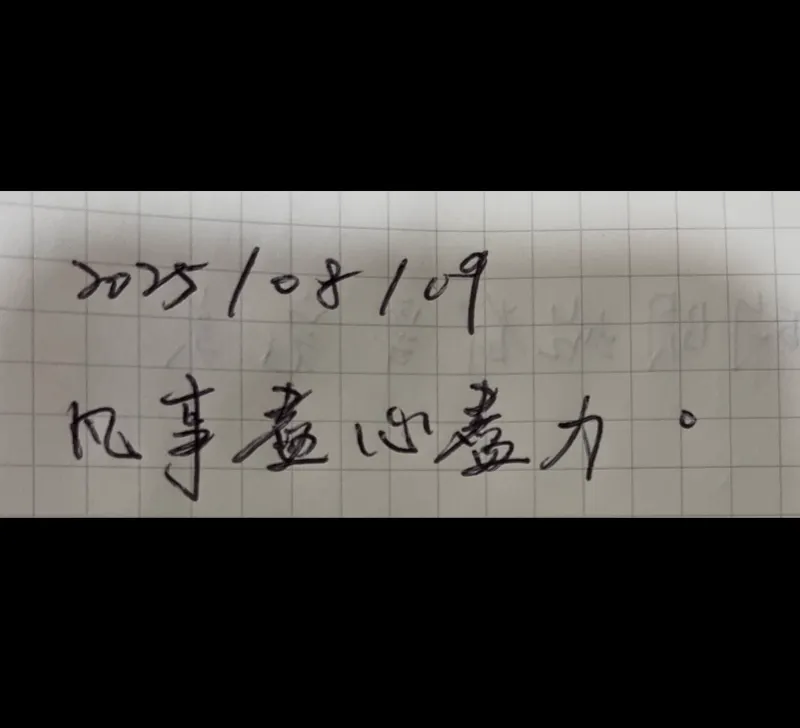 2025/08/09
凡事盡心盡力。